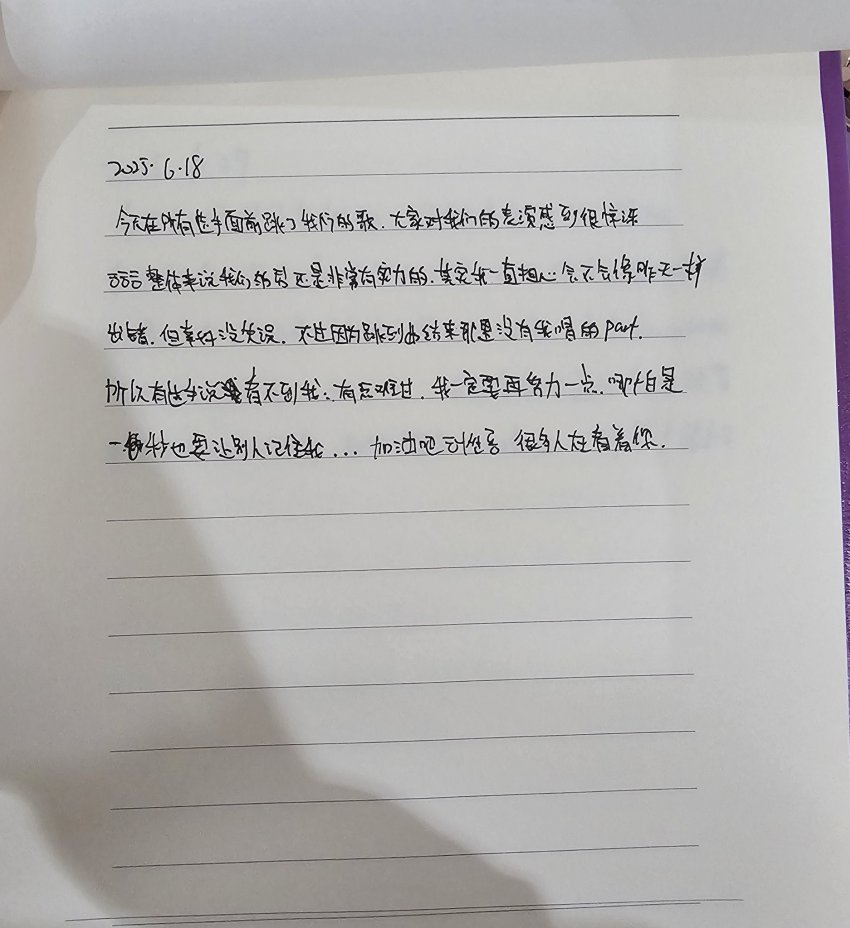 2025.6.18
今天在所有选手面前跳了我们的歌.大家对我们的表演感到很惊讶
整体来说我们组员还是非常有实力的.其实我一直担心会不会像昨天一样
出错.但幸好没失误.不过因为跳到结束都没有我唱的part.
所以有选手说看不到我.有点难过.我一定要再努力一点.哪怕是
一秒也要让别人记住我...加油吧 很多人在看着你.